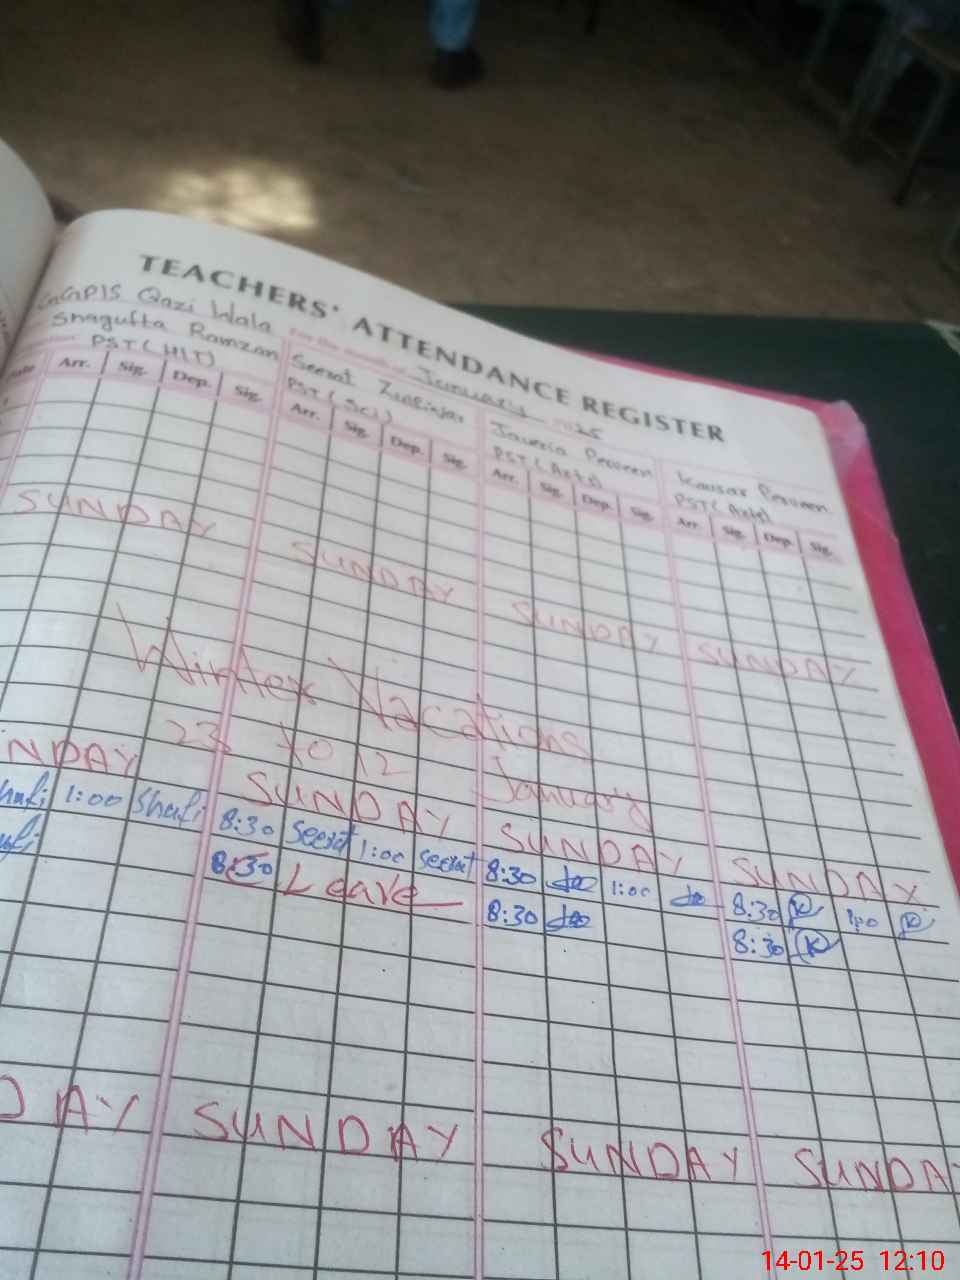 TEACHERS' ATTENDANCE REGISTER
GGPS Qazi Wala
For the month of January 2025
Shagufta Ramzan
PST (H/T)
Seerat Zulfiqar
PST (Sci)
Javeria Perveen
PST (Arts)
Kausar Perveen
PST (Arts)
Arr. Sig. Dep. Sig.
Arr. Sig. Dep. Sig.
Arr. Sig. Dep. Sig.
Arr. Sig. Dep. Sig.
SUNDAY SUNDAY SUNDAY SUNDAY
Winter Vacations
23 to 12 January
NDAY SUNDAY SUNDAY SUNDAY
hufi 1:00 Shufi 8:30 Seerat 1:00 Seerat 8:30 1:00 8:30 K 1:00 K
ufi 8:30 Leave 8:30 8:30 K
DAY SUNDAY SUNDAY SUNDA
14-01-25 12:10